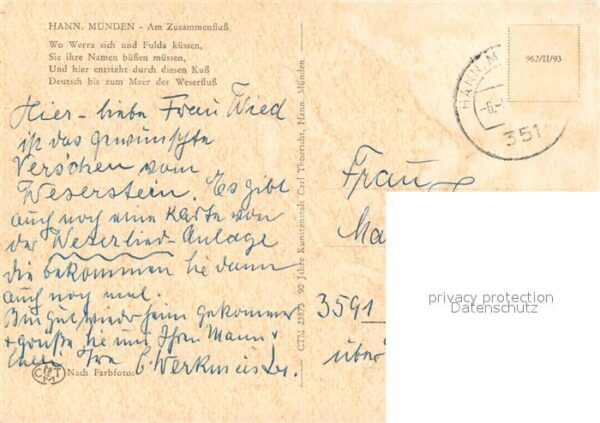 HANN. MÜNDEN - Am Zusammenfluß
Wo Werra sich und Fulda küssen,
Sie ihre Namen büßen müssen,
Und hier entsteht durch diesen Kuß
Deutsch bis zum Meer der Weserfluß
Hier - liebe Frau Wied
ist das gewünschte
Verschen vom
Weserstein. Es gibt
auch noch eine Karte von
der Weserlied-Anlage
die bekommen Sie dann
auch noch mal.
Bin gut wieder heim gekommen
+ grüße Sie und Ihren Mann +
Ihre E. Werkmeister.
CMT
Nach Farbfotos
CTM 23875 90 Jahre Kunstanstalt Carl Thoericht, Hann. Münden
962/II/93
HANN. M
351
Frau
Ma
3591
über
privacy protection
Datenschutz